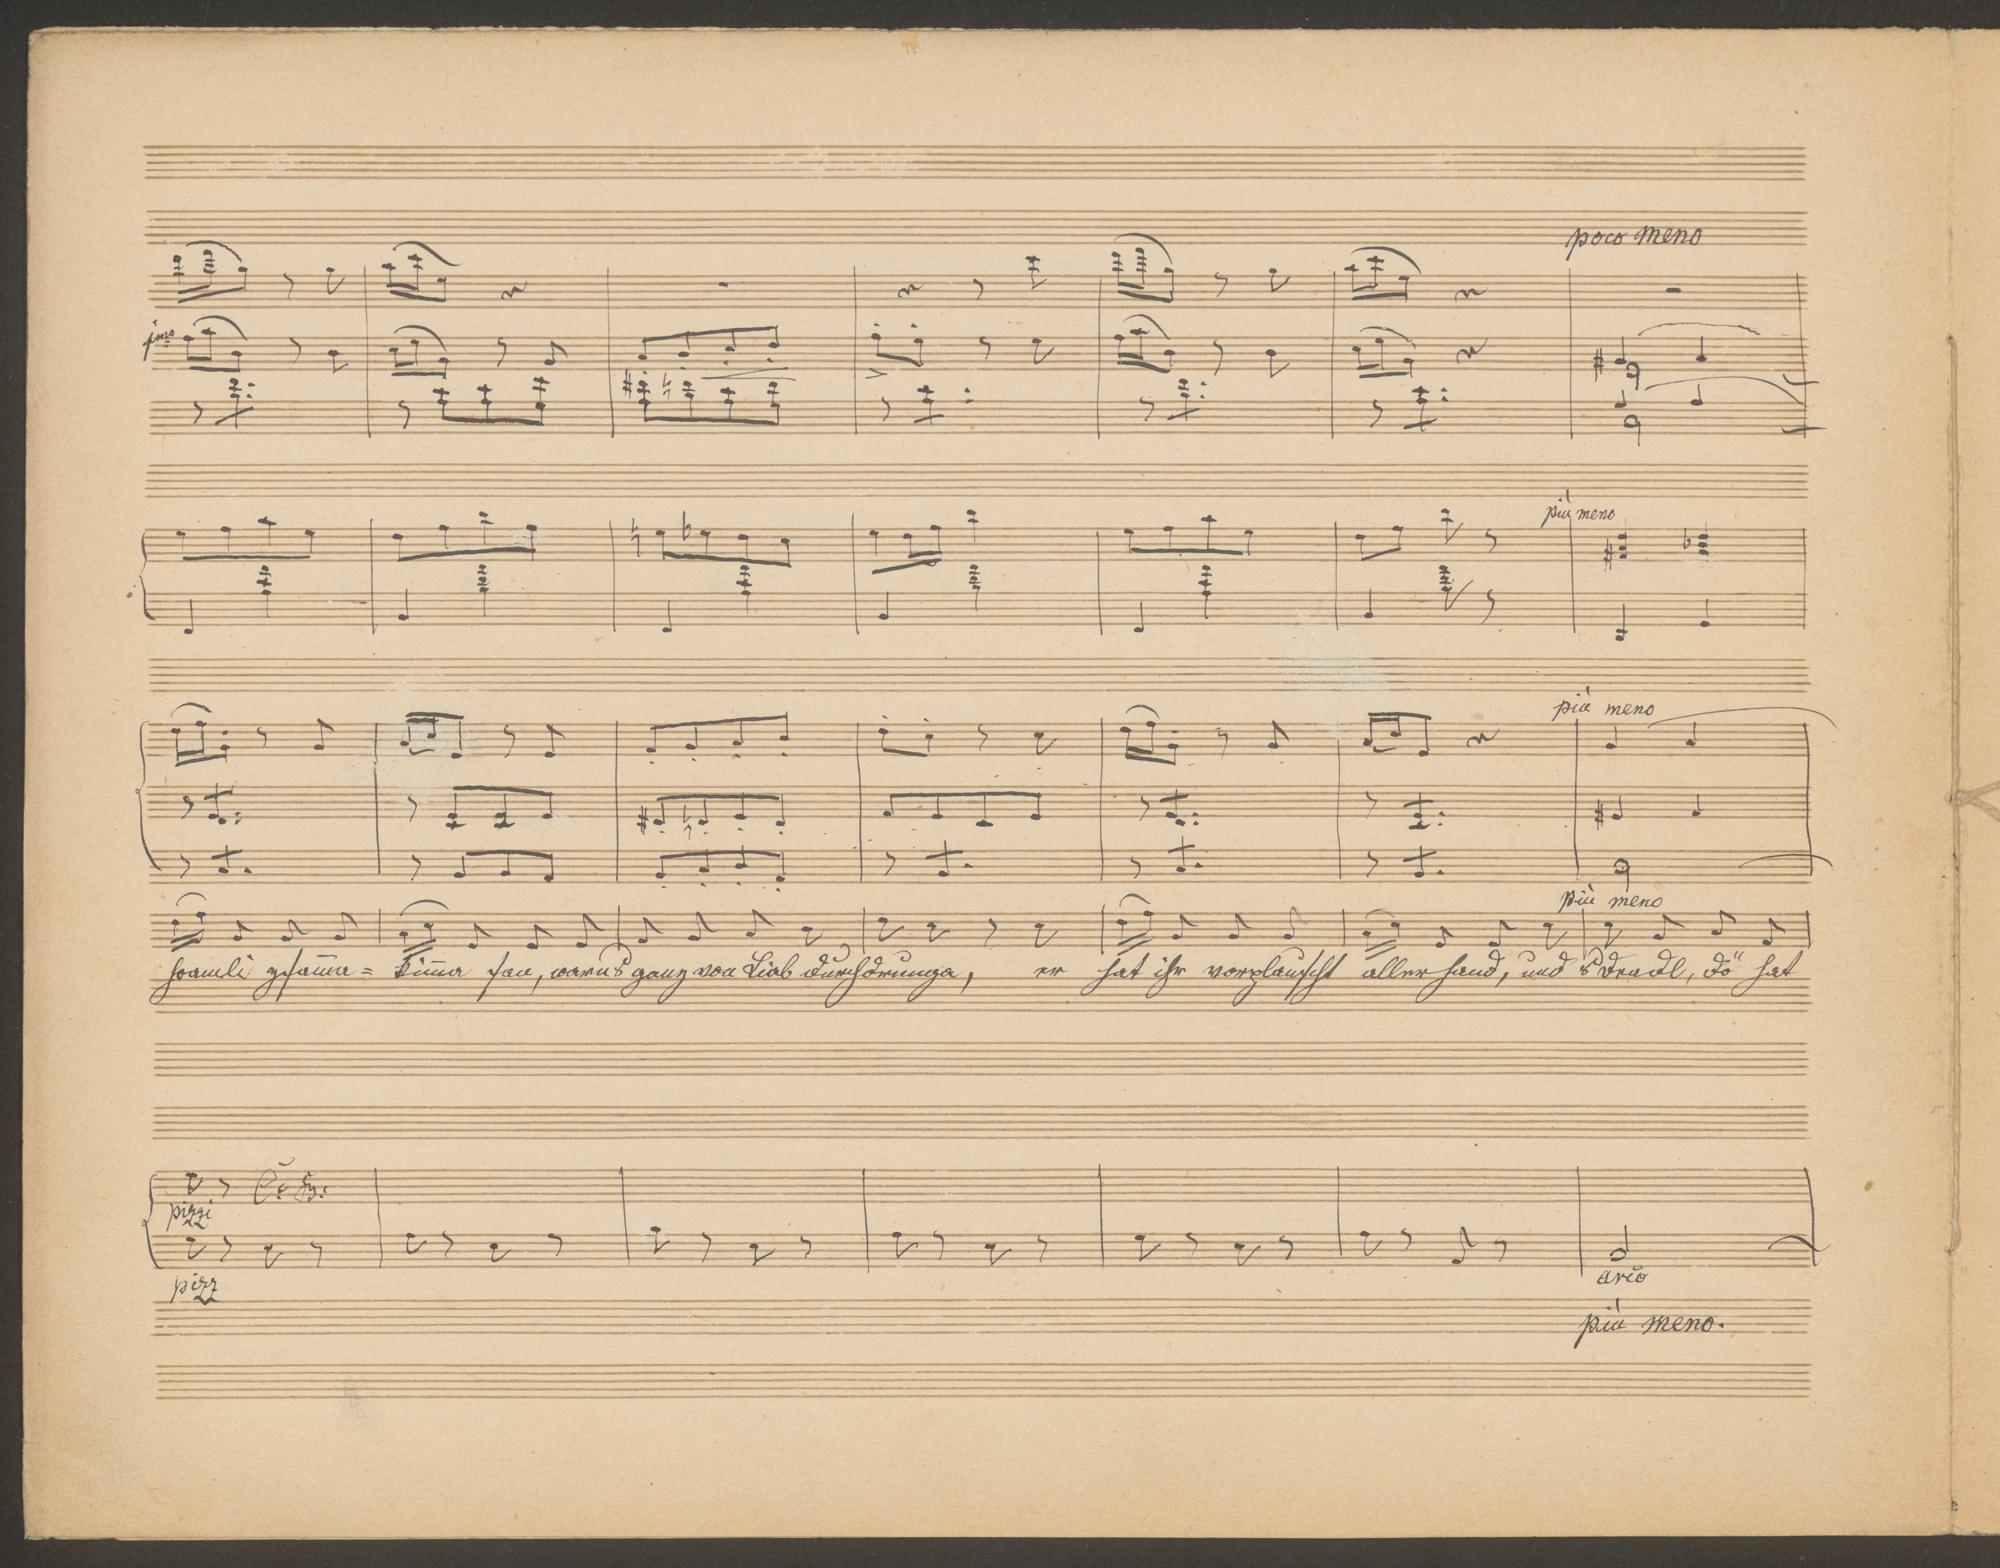 poco meno
jmo
più meno
più meno
più meno
hoamli zsamma= kimma san, warns ganz von Liab durchdrunga, er hat ihr vorplauscht allerhand, und 's Deandl, dö hat
pizzi
pizz
arco
più meno.